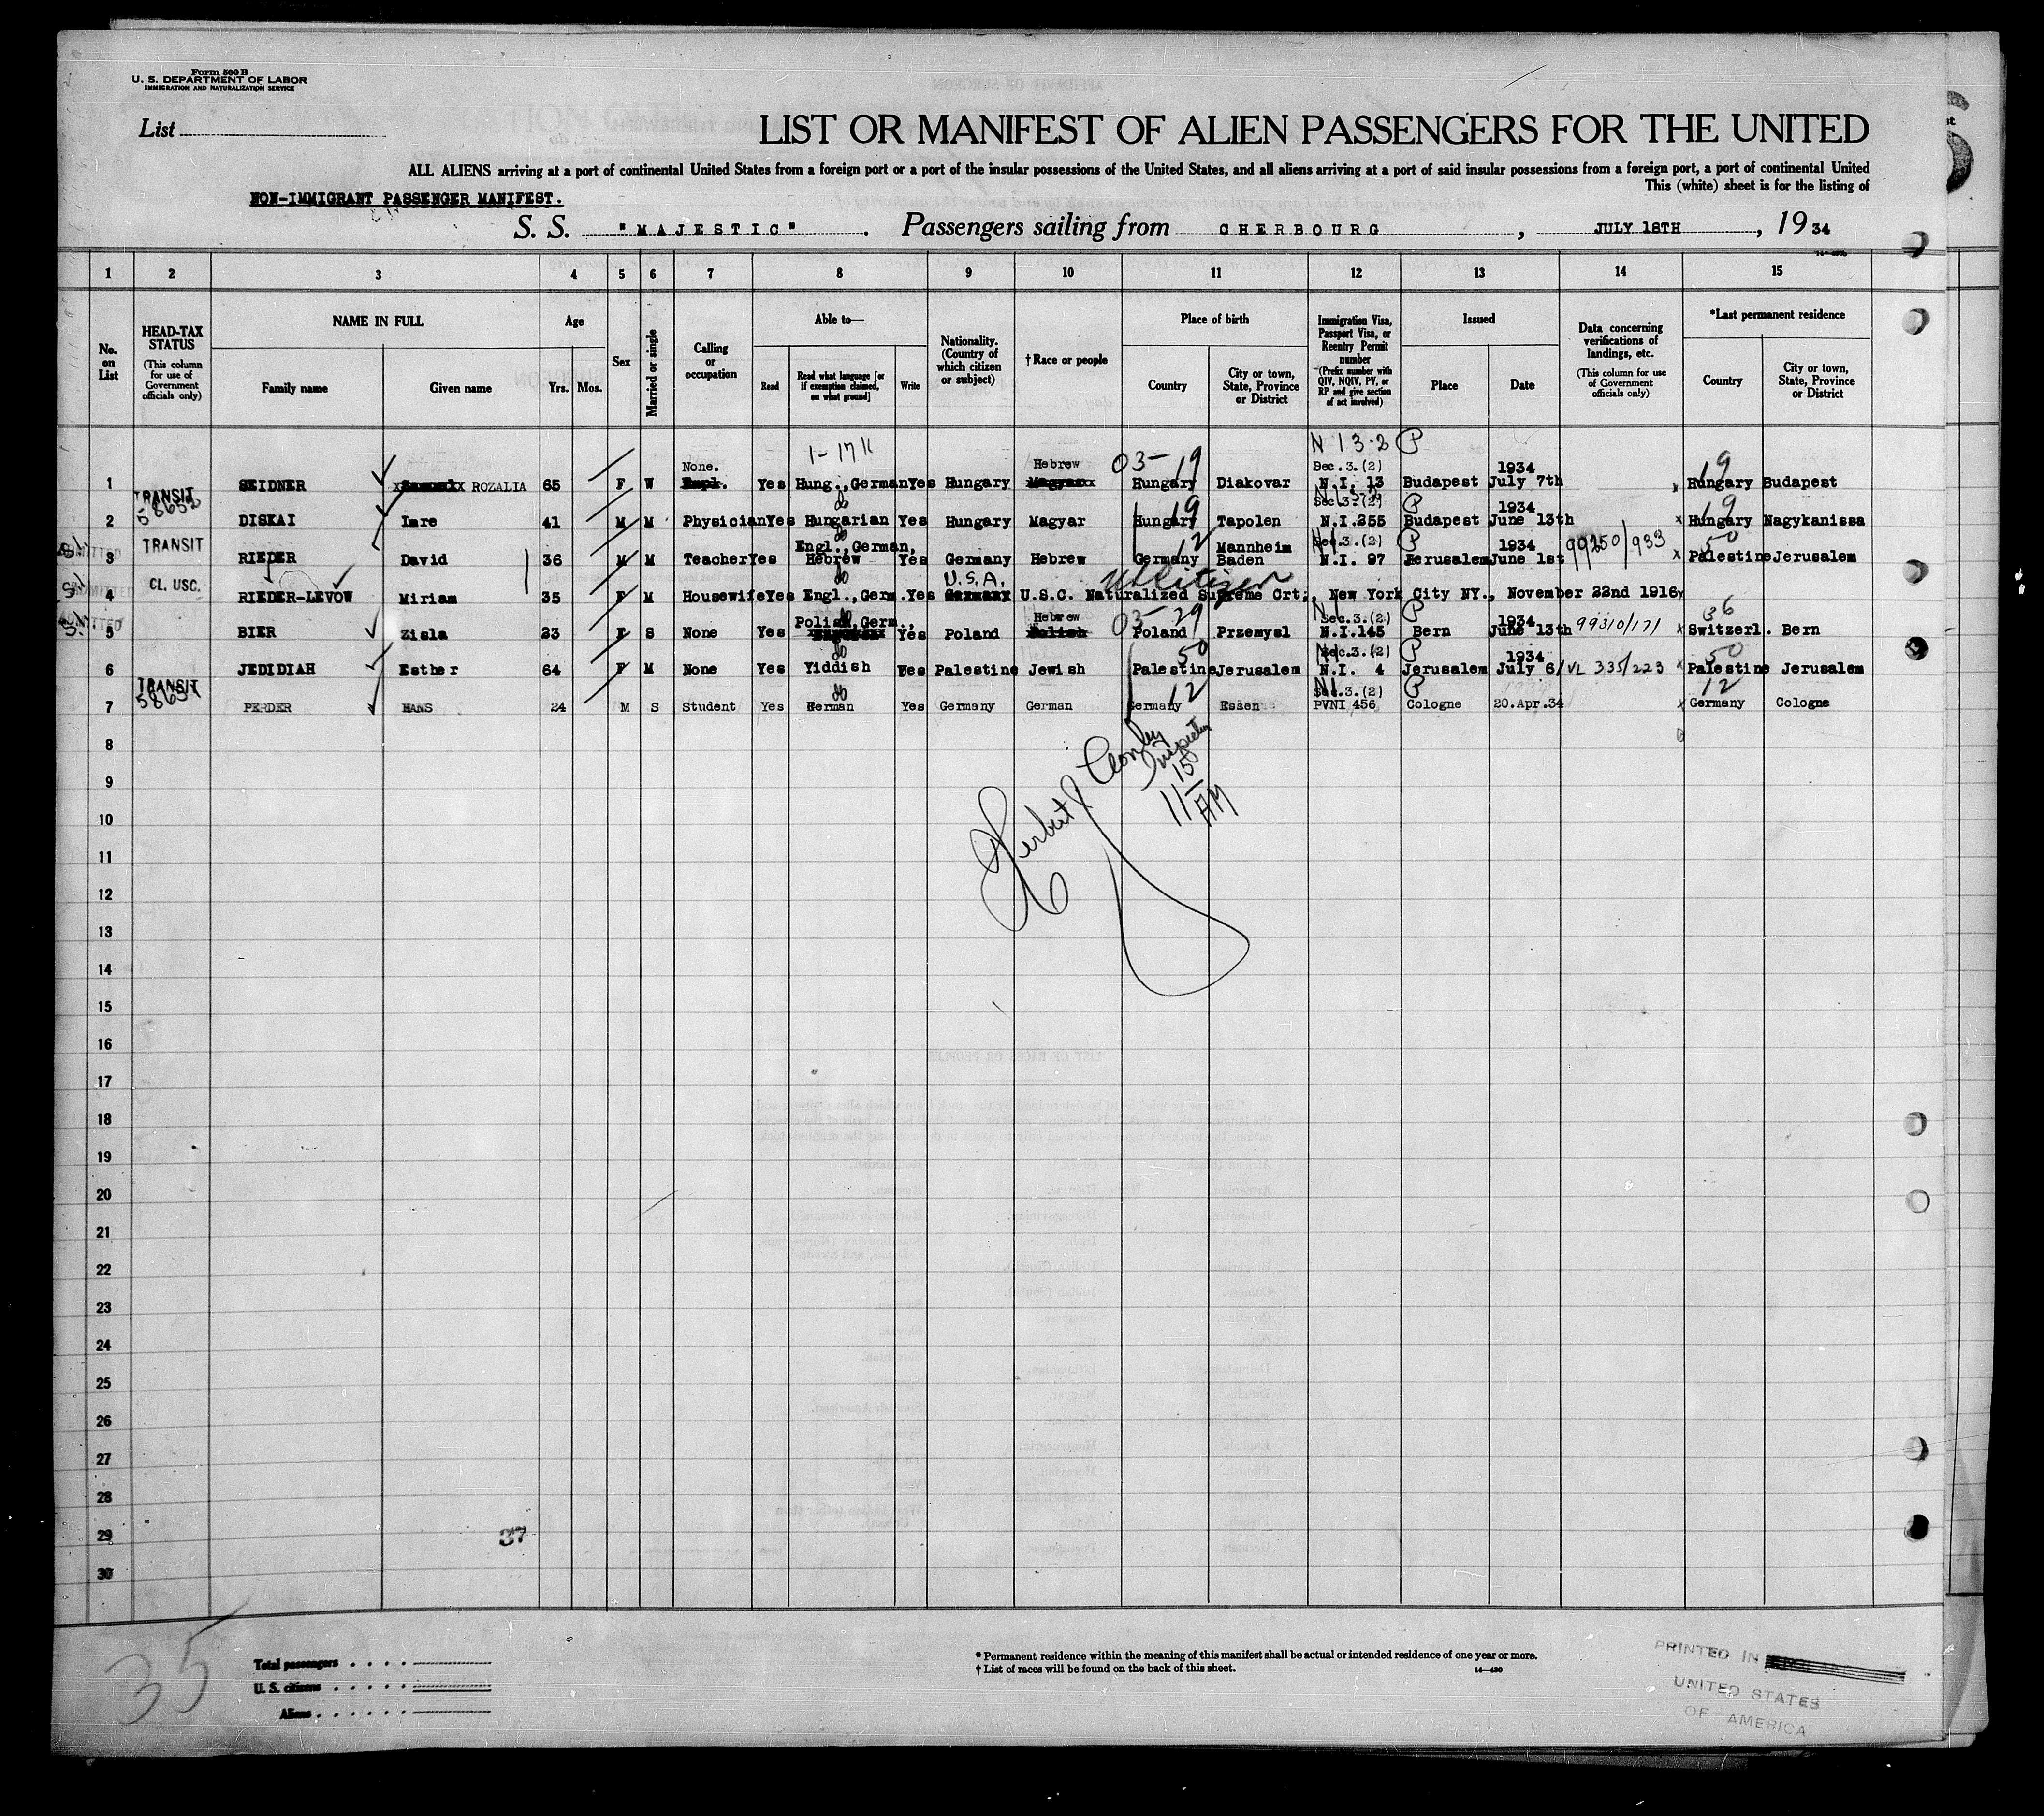 Form 500 B
U. S. DEPARTMENT OF LABOR
IMMIGRATION AND NATURALIZATION SERVICE
List
LIST OR MANIFEST OF ALIEN PASSENGERS FOR THE UNITED
ALL ALIENS arriving at a port of continental United States from a foreign port or a port of the insular possessions of the United States, and all aliens arriving at a port of said insular possessions from a foreign port, a port of continental United
This (white) sheet is for the listing of
NON-IMMIGRANT PASSENGER MANIFEST.
S. S. "MAJESTIC". Passengers sailing from CHERBOURG, JULY 18TH, 1934
1 2 3 4 5 6 7 8 9 10 11 12 13 14 15
No. on List
HEAD-TAX STATUS (This column for use of Government officials only)
NAME IN FULL
Family name
Given name
Age
Yrs. Mos.
Sex
Married or single
Calling or occupation
Able to—
Read
Read what language [or if exemption claimed, on what ground]
Write
Nationality. (Country of which citizen or subject)
†Race or people
Place of birth
Country
City or town, State, Province or District
Immigration Visa, Passport Visa, or Reentry Permit number (Prefix number with QIV, NQIV, PV, or RP and give section of act involved)
Issued
Place
Date
Data concerning verifications of landings, etc. (This column for use of Government officials only)
*Last permanent residence
Country
City or town, State, Province or District
N 13-2 P
None. Hebrew 03-19 Sec.3.(2) 1934 19
1 SEIDNER ROZALIA 65 F W Yes Hung.,German Yes Hungary Hungary Diakovar N.I. 13 Budapest July 7th Hungary Budapest
TRANSIT 58652 19 Sec.3.(2) P 1934 19
2 DISKAI Imre 41 M M Physician Yes Hungarian Yes Hungary Magyar Hungary Tapolen N.I.255 Budapest June 13th Hungary Nagykanissa
TRANSIT Engl.,German, 12 Mannheim Sec.3.(2) P 1934 99250/933 50
3 RIEDER David 36 M M Teacher Yes Hebrew Yes Germany Hebrew Germany Baden N.I. 97 Jerusalem June 1st Palestine Jerusalem
ADMITTED CL. USC. U.S.A. US Citizen
4 RIEDER-LEVOW Miriam 35 F M Housewife Yes Engl.,Germ. Yes Germany U.S.C. Naturalized Supreme Crt;, New York City NY., November 22nd 1916
ADMITTED Polish,Germ., Hebrew 03-29 Sec.3.(2) P 1934 99310/171 36
5 BIER Zisla 23 F S None Yes Yes Poland Polish Poland Przemysl N.I.145 Bern June 13th Switzerl. Bern
50 Sec.3.(2) P 1934 50
6 JEDIDIAH Esther 64 F M None Yes Yiddish Yes Palestine Jewish Palestine Jerusalem N.I. 4 Jerusalem July 6/ VL 335/223 Palestine Jerusalem
TRANSIT 58651 12 Sec.3.(2) P 12
7 PERDER HANS 24 M S Student Yes German Yes Germany German Germany Essen PVNI 456 Cologne 20.Apr.34 Germany Cologne
8
9
Herbert
Inspector
10
11 AM
11
12
13
14
15
16
17
18
19
20
21
22
23
24
25
26
27
28
29
37
30
35
Total passengers
U. S. citizens
Aliens
* Permanent residence within the meaning of this manifest shall be actual or intended residence of one year or more.
† List of races will be found on the back of this sheet.
14—430
PRINTED IN
UNITED STATES
OF AMERICA